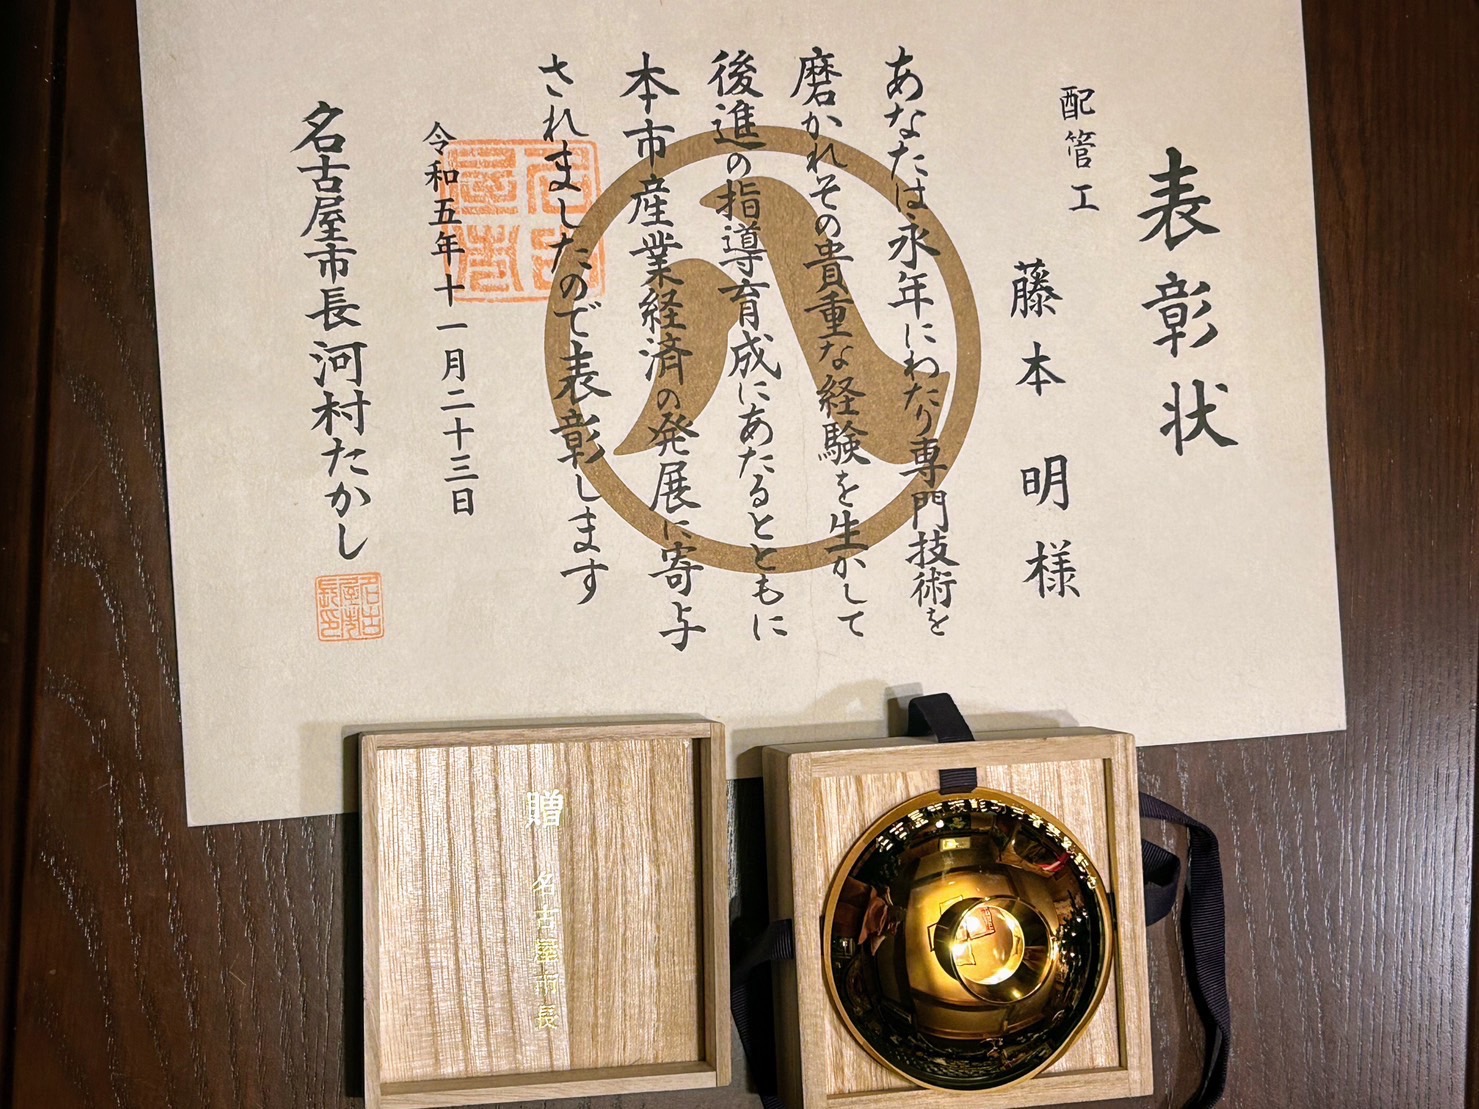 表彰状
配管工
藤本 明様
あなたは永年にわたり専門技術を
磨かれその貴重な経験を生かして
後進の指導育成にあたるとともに
本市産業経済の発展に寄与
されましたので表彰します
令和五年十一月二十三日
名古屋市長 河村たかし
名古屋市長印
贈
名古屋市長